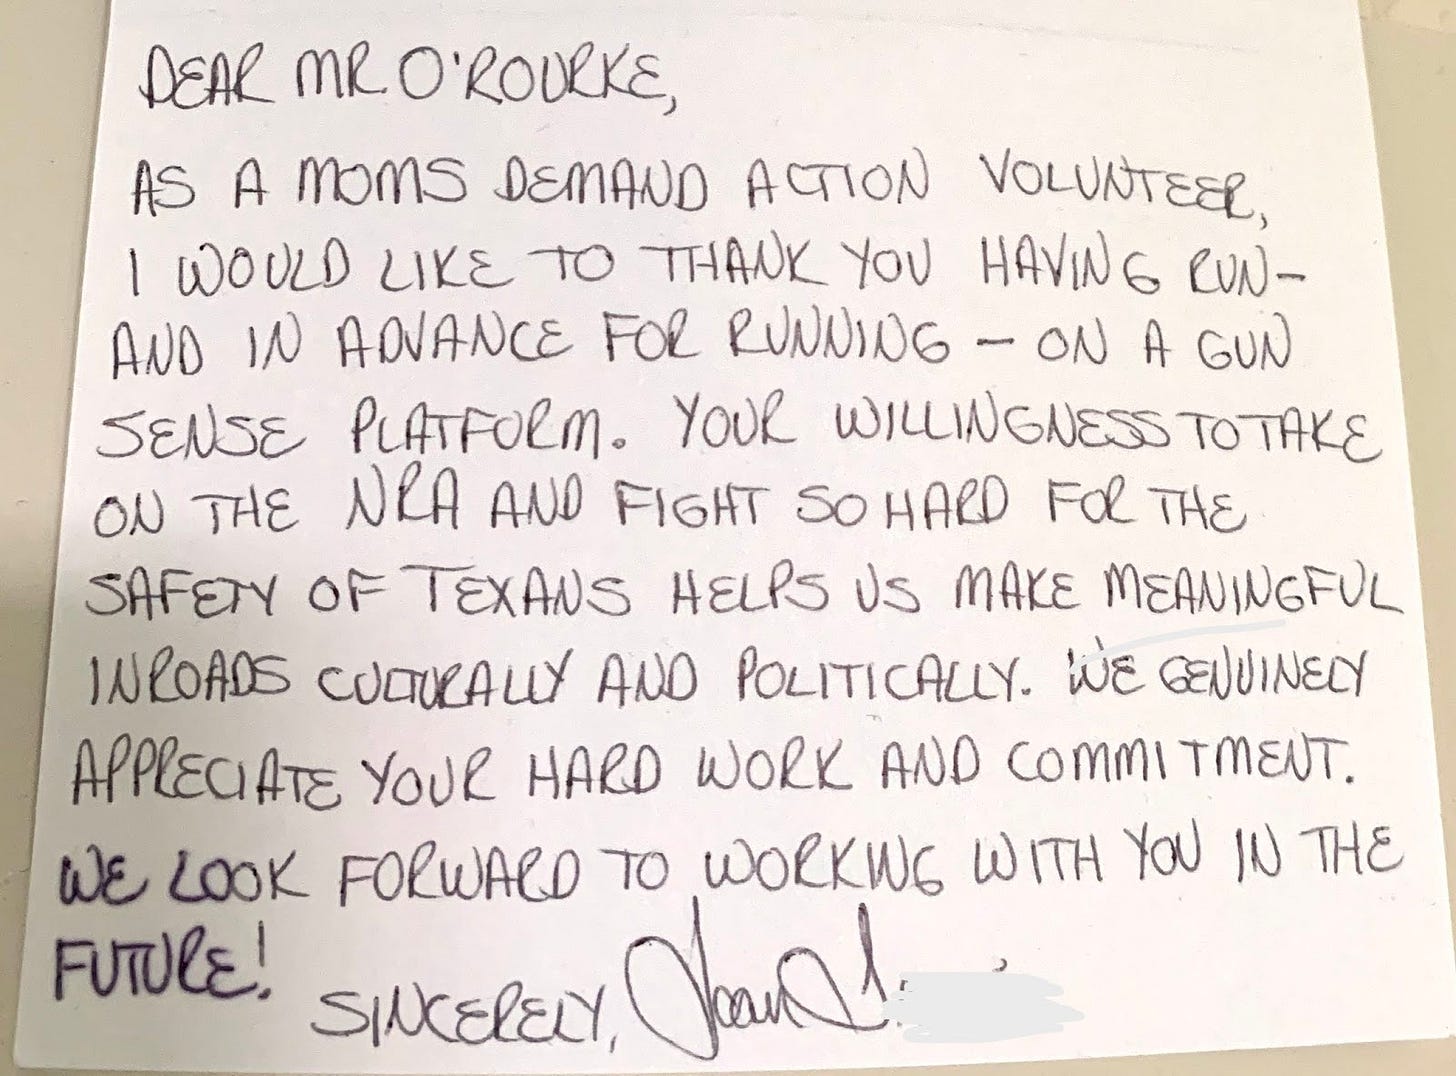 DEAR MR. O'ROURKE,
AS A MOMS DEMAND ACTION VOLUNTEER,
I WOULD LIKE TO THANK YOU HAVING RUN-
AND IN ADVANCE FOR RUNNING - ON A GUN
SENSE PLATFORM. YOUR WILLINGNESS TO TAKE
ON THE NRA AND FIGHT SO HARD FOR THE
SAFETY OF TEXANS HELPS US MAKE MEANINGFUL
INROADS CULTURALLY AND POLITICALLY. WE GENUINELY
APPRECIATE YOUR HARD WORK AND COMMITMENT.
WE LOOK FORWARD TO WORKING WITH YOU IN THE
FUTURE!
SINCERELY,